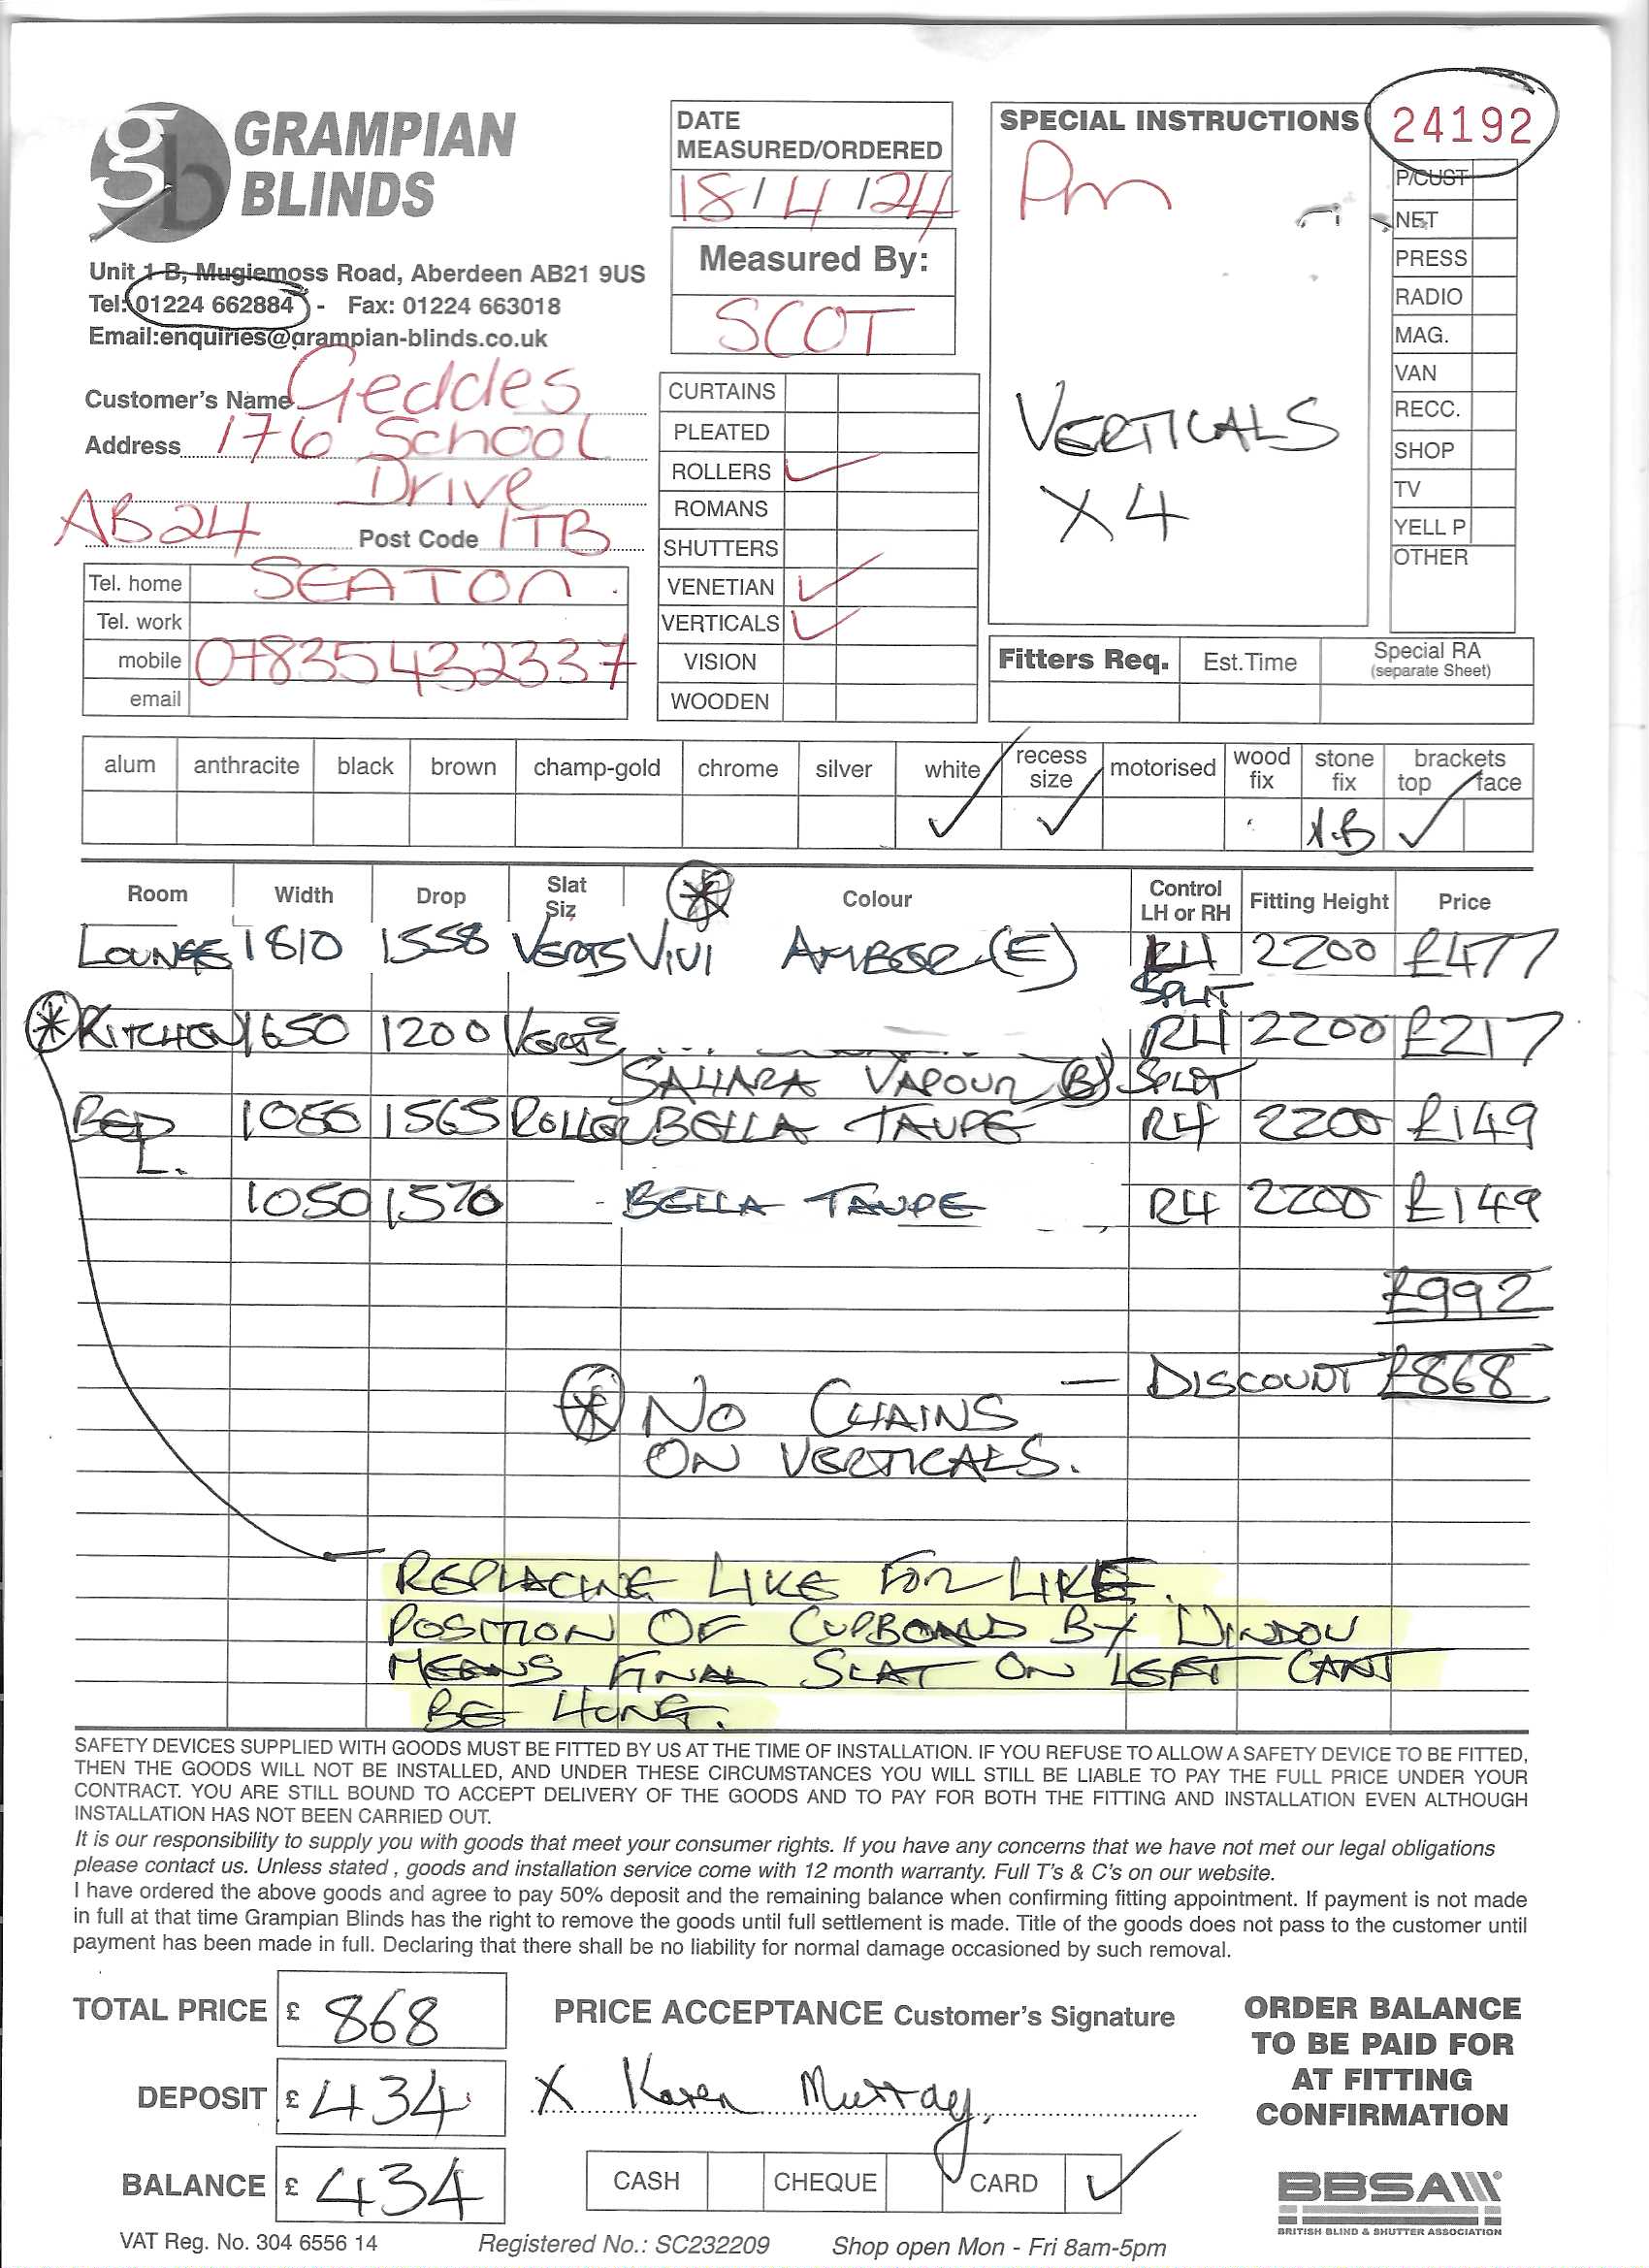 gb GRAMPIAN
BLINDS
Unit 1 B, Mugiemoss Road, Aberdeen AB21 9US
Tel: 01224 662884 - Fax: 01224 663018
Email:enquiries@grampian-blinds.co.uk
DATE
MEASURED/ORDERED
18/4/24
Measured By:
SCOT
SPECIAL INSTRUCTIONS
24192
Pm
VERTICALS
X4
P/CUST
NET
PRESS
RADIO
MAG.
VAN
RECC.
SHOP
TV
YELL P
OTHER
Customer's Name Geddes
Address 176 School
Drive
AB24 Post Code 1TB
Tel. home SEATON
Tel. work
mobile 07835432337
email
CURTAINS
PLEATED
ROLLERS ✓
ROMANS
SHUTTERS
VENETIAN ✓
VERTICALS ✓
VISION
WOODEN
Fitters Req. Est.Time Special RA
(separate Sheet)
alum anthracite black brown champ-gold chrome silver white recess size motorised wood fix stone fix brackets top face
✓ ✓ ✓
Room Width Drop Slat Siz Colour Control LH or RH Fitting Height Price
LOUNGE 1810 1558 VERTS VIVI AMBER (E) RH 2200 £477
SPLIT
* KITCHEN 1650 1200 VERTS RH 2200 £217
SAHARA VAPOUR (B) SPLIT
BED 1050 1565 ROLLER BELLA TAUPE RH 2200 £149
L.
1050 1570 BELLA TAUPE RH 2200 £149
£992
— DISCOUNT £868
* NO CHAINS
ON VERTICALS.
REPLACING LIKE FOR LIKE.
POSITION OF CUPBOARD BY WINDOW
MEANS FINAL SLAT ON LEFT CANT
BE HUNG.
SAFETY DEVICES SUPPLIED WITH GOODS MUST BE FITTED BY US AT THE TIME OF INSTALLATION. IF YOU REFUSE TO ALLOW A SAFETY DEVICE TO BE FITTED,
THEN THE GOODS WILL NOT BE INSTALLED, AND UNDER THESE CIRCUMSTANCES YOU WILL STILL BE LIABLE TO PAY THE FULL PRICE UNDER YOUR
CONTRACT. YOU ARE STILL BOUND TO ACCEPT DELIVERY OF THE GOODS AND TO PAY FOR BOTH THE FITTING AND INSTALLATION EVEN ALTHOUGH
INSTALLATION HAS NOT BEEN CARRIED OUT.
It is our responsibility to supply you with goods that meet your consumer rights. If you have any concerns that we have not met our legal obligations
please contact us. Unless stated , goods and installation service come with 12 month warranty. Full T's & C's on our website.
I have ordered the above goods and agree to pay 50% deposit and the remaining balance when confirming fitting appointment. If payment is not made
in full at that time Grampian Blinds has the right to remove the goods until full settlement is made. Title of the goods does not pass to the customer until
payment has been made in full. Declaring that there shall be no liability for normal damage occasioned by such removal.
TOTAL PRICE £ 868
DEPOSIT £ 434
BALANCE £ 434
PRICE ACCEPTANCE Customer's Signature
X Karen Murray
CASH CHEQUE CARD ✓
ORDER BALANCE
TO BE PAID FOR
AT FITTING
CONFIRMATION
BBSA
BRITISH BLIND & SHUTTER ASSOCIATION
VAT Reg. No. 304 6556 14 Registered No.: SC232209 Shop open Mon - Fri 8am-5pm